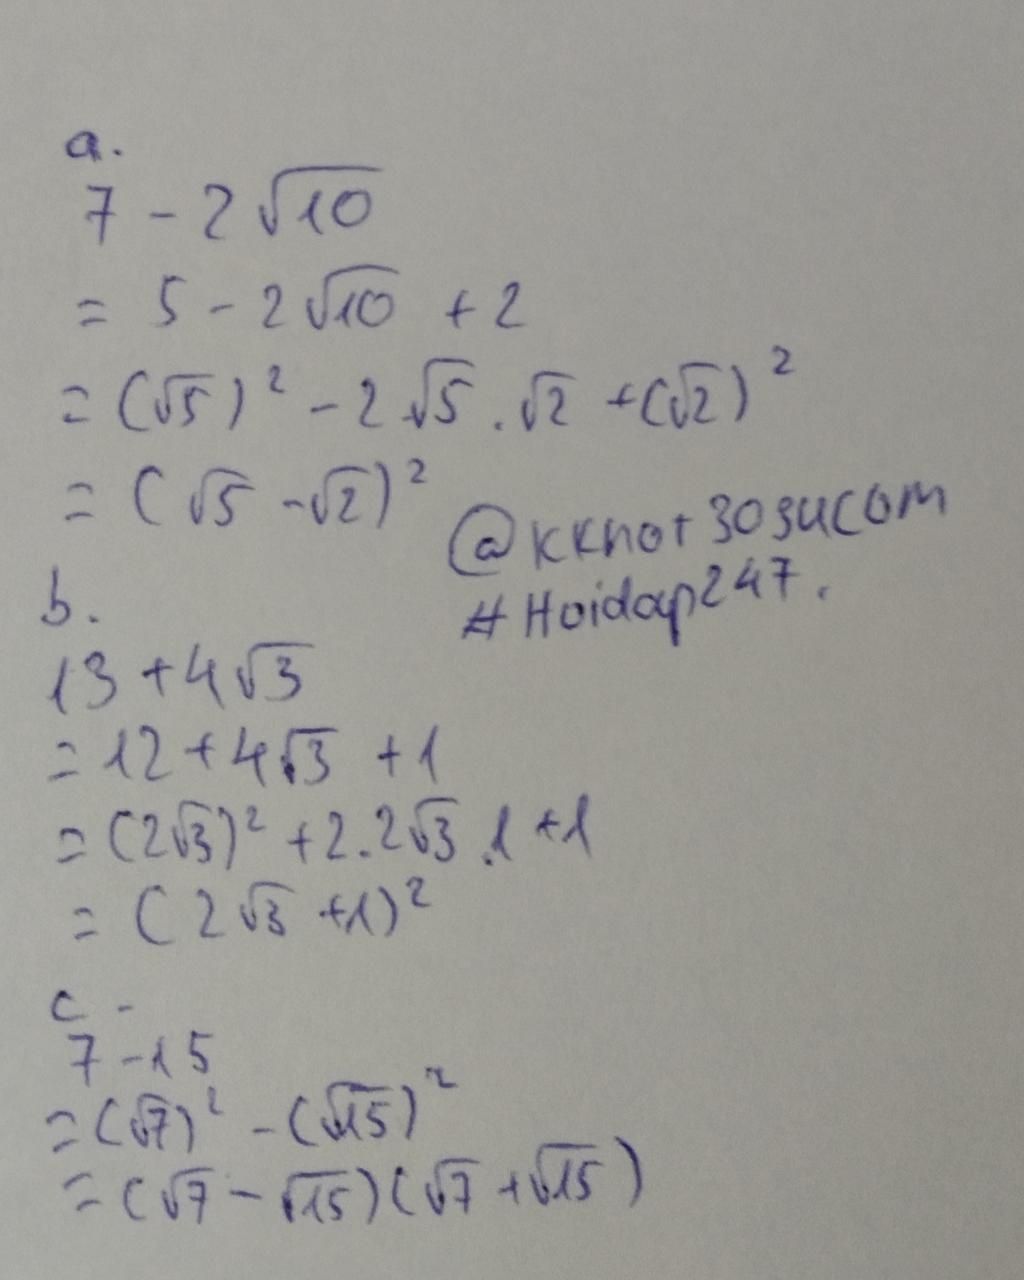 a.
7 - 2√10
= 5 - 2√10 + 2
= (√5)² - 2√5 . √2 + (√2)²
= (√5 - √2)²
@kknot3039ucom
#Hoidap247.
b.
13 + 4√3
= 12 + 4√3 + 1
= (2√3)² + 2.2√3 .1 + 1
= (2√3 + 1)²
c -
7 - 15
= (√7)² - (√15)²
= (√7 - √15)(√7 + √15)